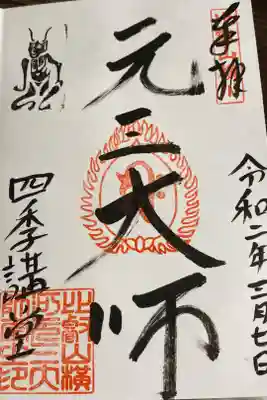 奉拝
令和二年三月七日
元三大師
四季講堂
比叡山横